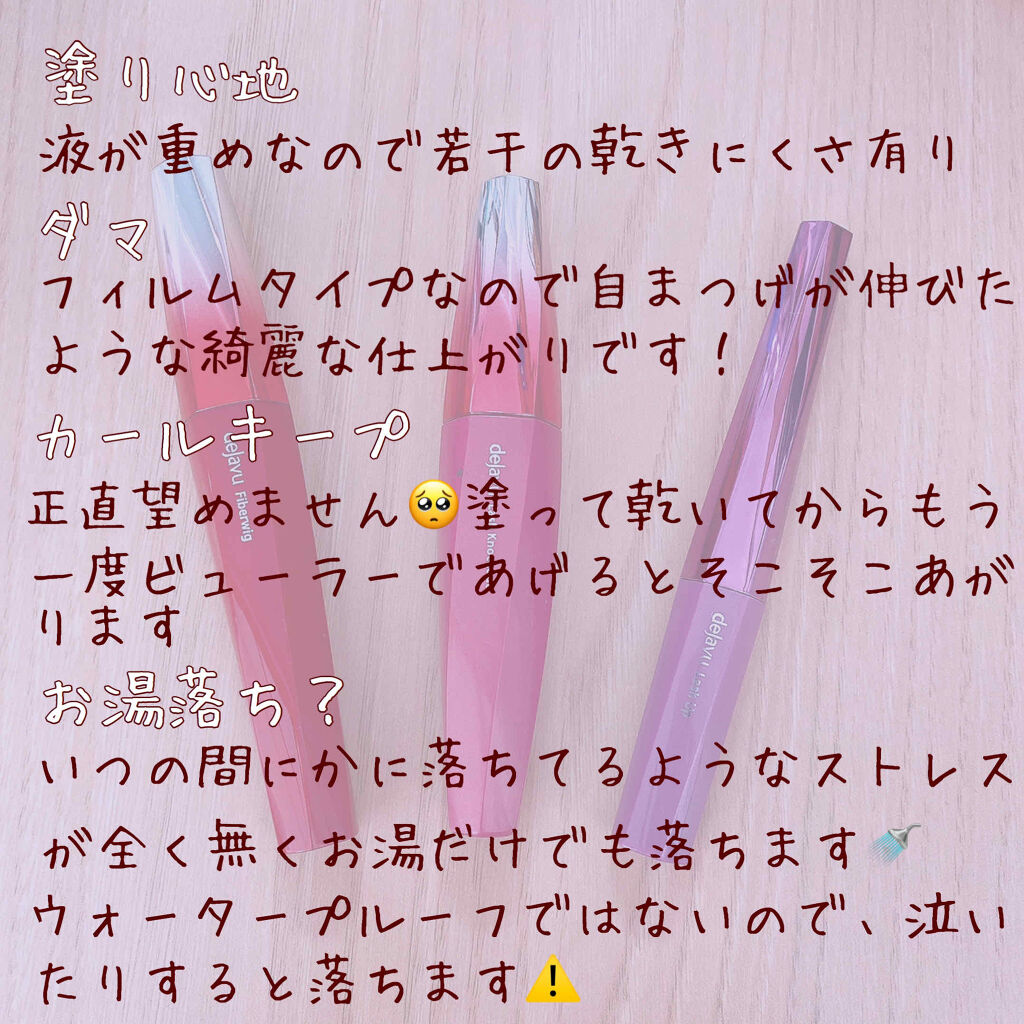 塗り心地
液が重めなので若干の乾きにくさ有り
ダマ
フィルムタイプなので自まつげが伸びた
ような綺麗な仕上がりです！
カールキープ
正直望めません🥺塗って乾いてからもう
一度ビューラーであげるとそこそこあが
ります
お湯落ち？
いつの間にかに落ちてるようなストレス
が全く無くお湯だけでも落ちます🚿
ウォータープルーフではないので、泣い
たりすると落ちます⚠️
dejavu Fiberwig
dejavu